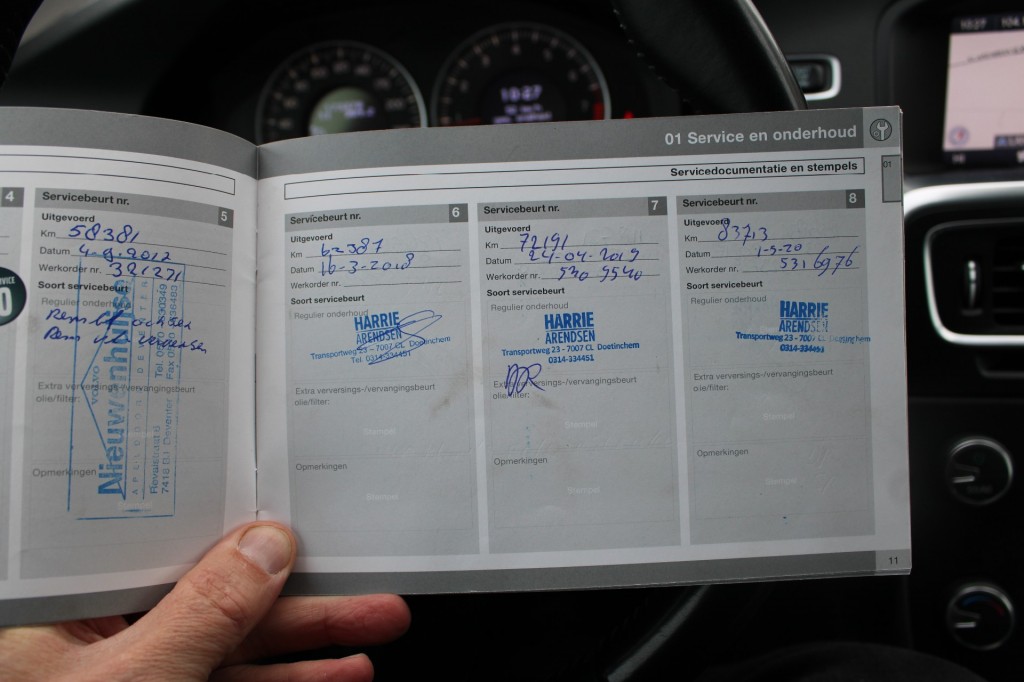 10:27
01 Service en onderhoud
01
Servicedocumentatie en stempels
4
Servicebeurt nr. 5
Uitgevoerd
Km 58381
Datum
Werkorder nr. 321271
Soort servicebeurt
Regulier onderhoud
Extra verversings-/vervangingsbeurt
olie/filter:
Opmerkingen
VOLVO
Nieuwenhuijse
APELDOORN DEVENTER
7418 Deventer
Servicebeurt nr. 6
Uitgevoerd
Km 62387
Datum 16-3-2018
Werkorder nr.
Soort servicebeurt
Regulier onderhoud
HARRIE
ARENDSEN
Transportweg 23 - 7007 CL Doetinchem
Tel. 0314-334451
Extra verversings-/vervangingsbeurt
olie/filter:
Stempel
Opmerkingen
Stempel
Servicebeurt nr. 7
Uitgevoerd
Km 72191
Datum 24-04-2019
Werkorder nr. 530 9540
Soort servicebeurt
Regulier onderhoud
HARRIE
ARENDSEN
Transportweg 23 - 7007 CL Doetinchem
0314-334451
Extra verversings-/vervangingsbeurt
olie/filter:
Stempel
Opmerkingen
Stempel
Servicebeurt nr. 8
Uitgevoerd
Km 83713
Datum 1-5-20
Werkorder nr. 5316976
Soort servicebeurt
Regulier onderhoud
HARRIE
ARENDSEN
Transportweg 23 - 7007 CL Doetinchem
0314-334451
Extra verversings-/vervangingsbeurt
olie/filter:
Stempel
Opmerkingen
Stempel
11